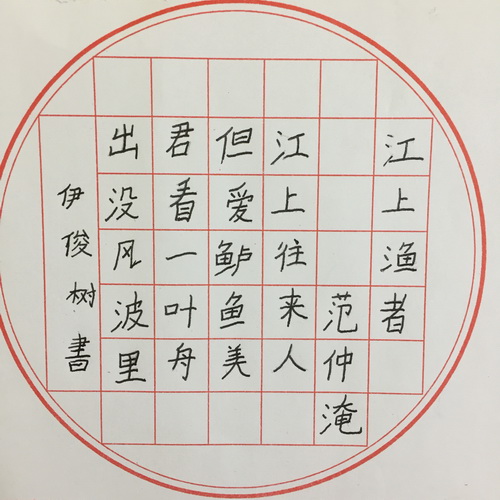 江上渔者
范仲淹
江上往来人
但爱鲈鱼美
君看一叶舟
出没风波里
伊俊树書